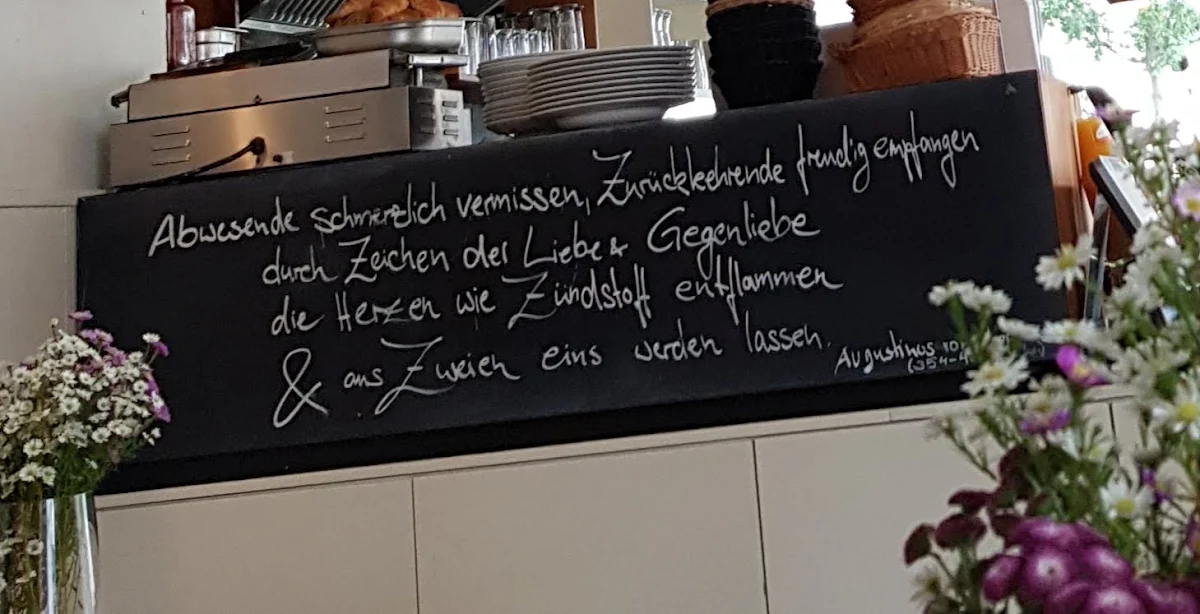 Abwesende schmerzlich vermissen, Zurückkehrende freudig empfangen
durch Zeichen der Liebe & Gegenliebe
die Herzen wie Zündstoff entflammen
& aus Zweien eins werden lassen.
Augustinus
(354-4